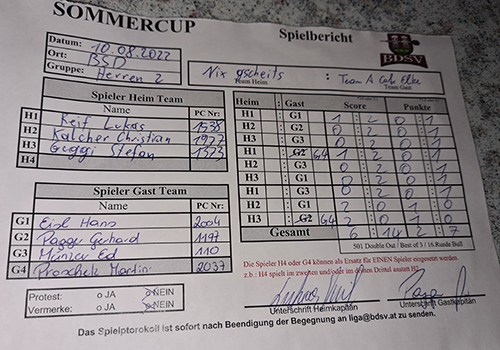 SOMMERCUP
Spielbericht
BDSV
Datum: 10.08.2022
Ort: BSD
Gruppe: Herren 2
Nix gscheits : Team A Cafe
Team Heim Team Gast
Spieler Heim Team
Name PC Nr:
H1 Reif Lukas 1538
H2 Kalcher Christian 1977
H3 Guggi Stefan 1373
H4
Spieler Gast Team
Name PC Nr:
G1 Eisl Hans 2004
G2 Paggy Gerhard 1197
G3 Ed 110
G4 Proschek Martin 2037
Heim : Gast Score Punkte
H1 : G1 1 : 2 0 : 1
H2 : G2 0 : 2 0 : 1
H3 : G3 0 : 2 0 : 1
H1 : G2 G4 1 : 2 0 : 1
H2 : G3 2 : 0 1 : 0
H3 : G1 0 : 2 0 : 1
H1 : G3 0 : 2 0 : 1
H2 : G1 0 : 2 0 : 1
H3 : G2 G4 2 : 0 1 : 0
Gesamt 6 : 14 2 : 7
501 Double Out / Best of 3 / 16 Runde Bull
Die Spieler H4 oder G4 können als Ersatz für EINEN Spieler eingesetzt werden.
z.B.: H4 spielt im zweiten und/oder im dritten Drittel anstatt H2.
Protest: o JA o NEIN
Vermerke: o JA o NEIN
Unterschrift Heimkapitän
Unterschrift Gastkapitän
Das Spielprotokoll ist sofort nach Beendigung der Begegnung an liga@bdsv.at zu senden.